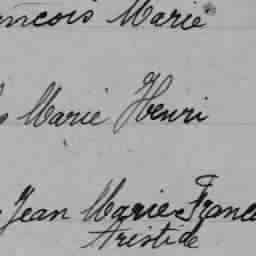 ancois Marie
s Marie Henri
Jean Marie Franc
Aristide